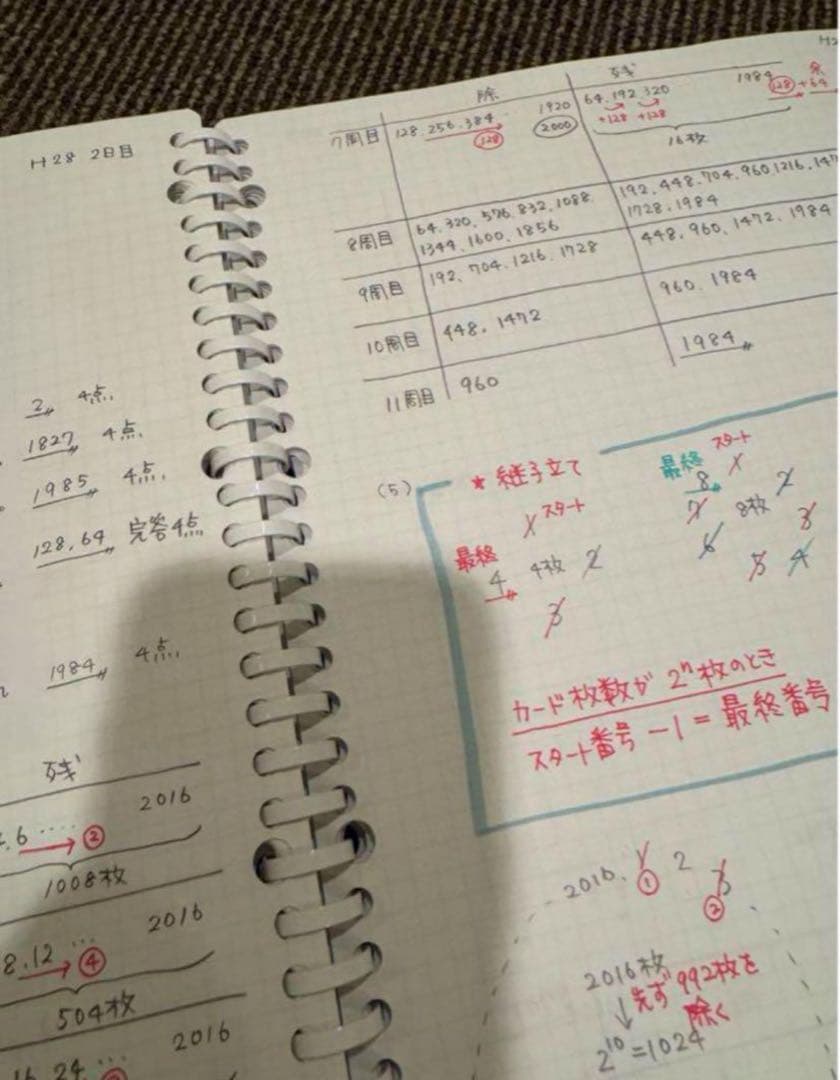 H28 2日目
2 4点
1827 4点
1985 4点
128,64 完答4点
1984 4点
残
6 .... ② 2016
1008枚
8.12 ... ④ 2016
504枚
16 24 ... 2016
除 残
7周目 128.256.384 1920 2000 64.192.320 1984
128 +128 +128 128 +64
16枚
8周目 64.320.576.832.1088. 192.448.704.960.1216.147
1344.1600.1856 1728.1984
9周目 192.704.1216.1728 448.960.1472.1984
10周目 448.1472 960.1984
11周目 960 1984
(5) ★継子立て
1 スタート
最終 4 4枚 2
3
最終 スタート
8 1
7 8枚 2
6 3
5 4
カード枚数が 2ⁿ枚のとき
スタート番号 -1 = 最終番号
2016. 1 2 3
① ②
2016枚
↓ 先ず 992枚を
除く
2¹⁰=1024